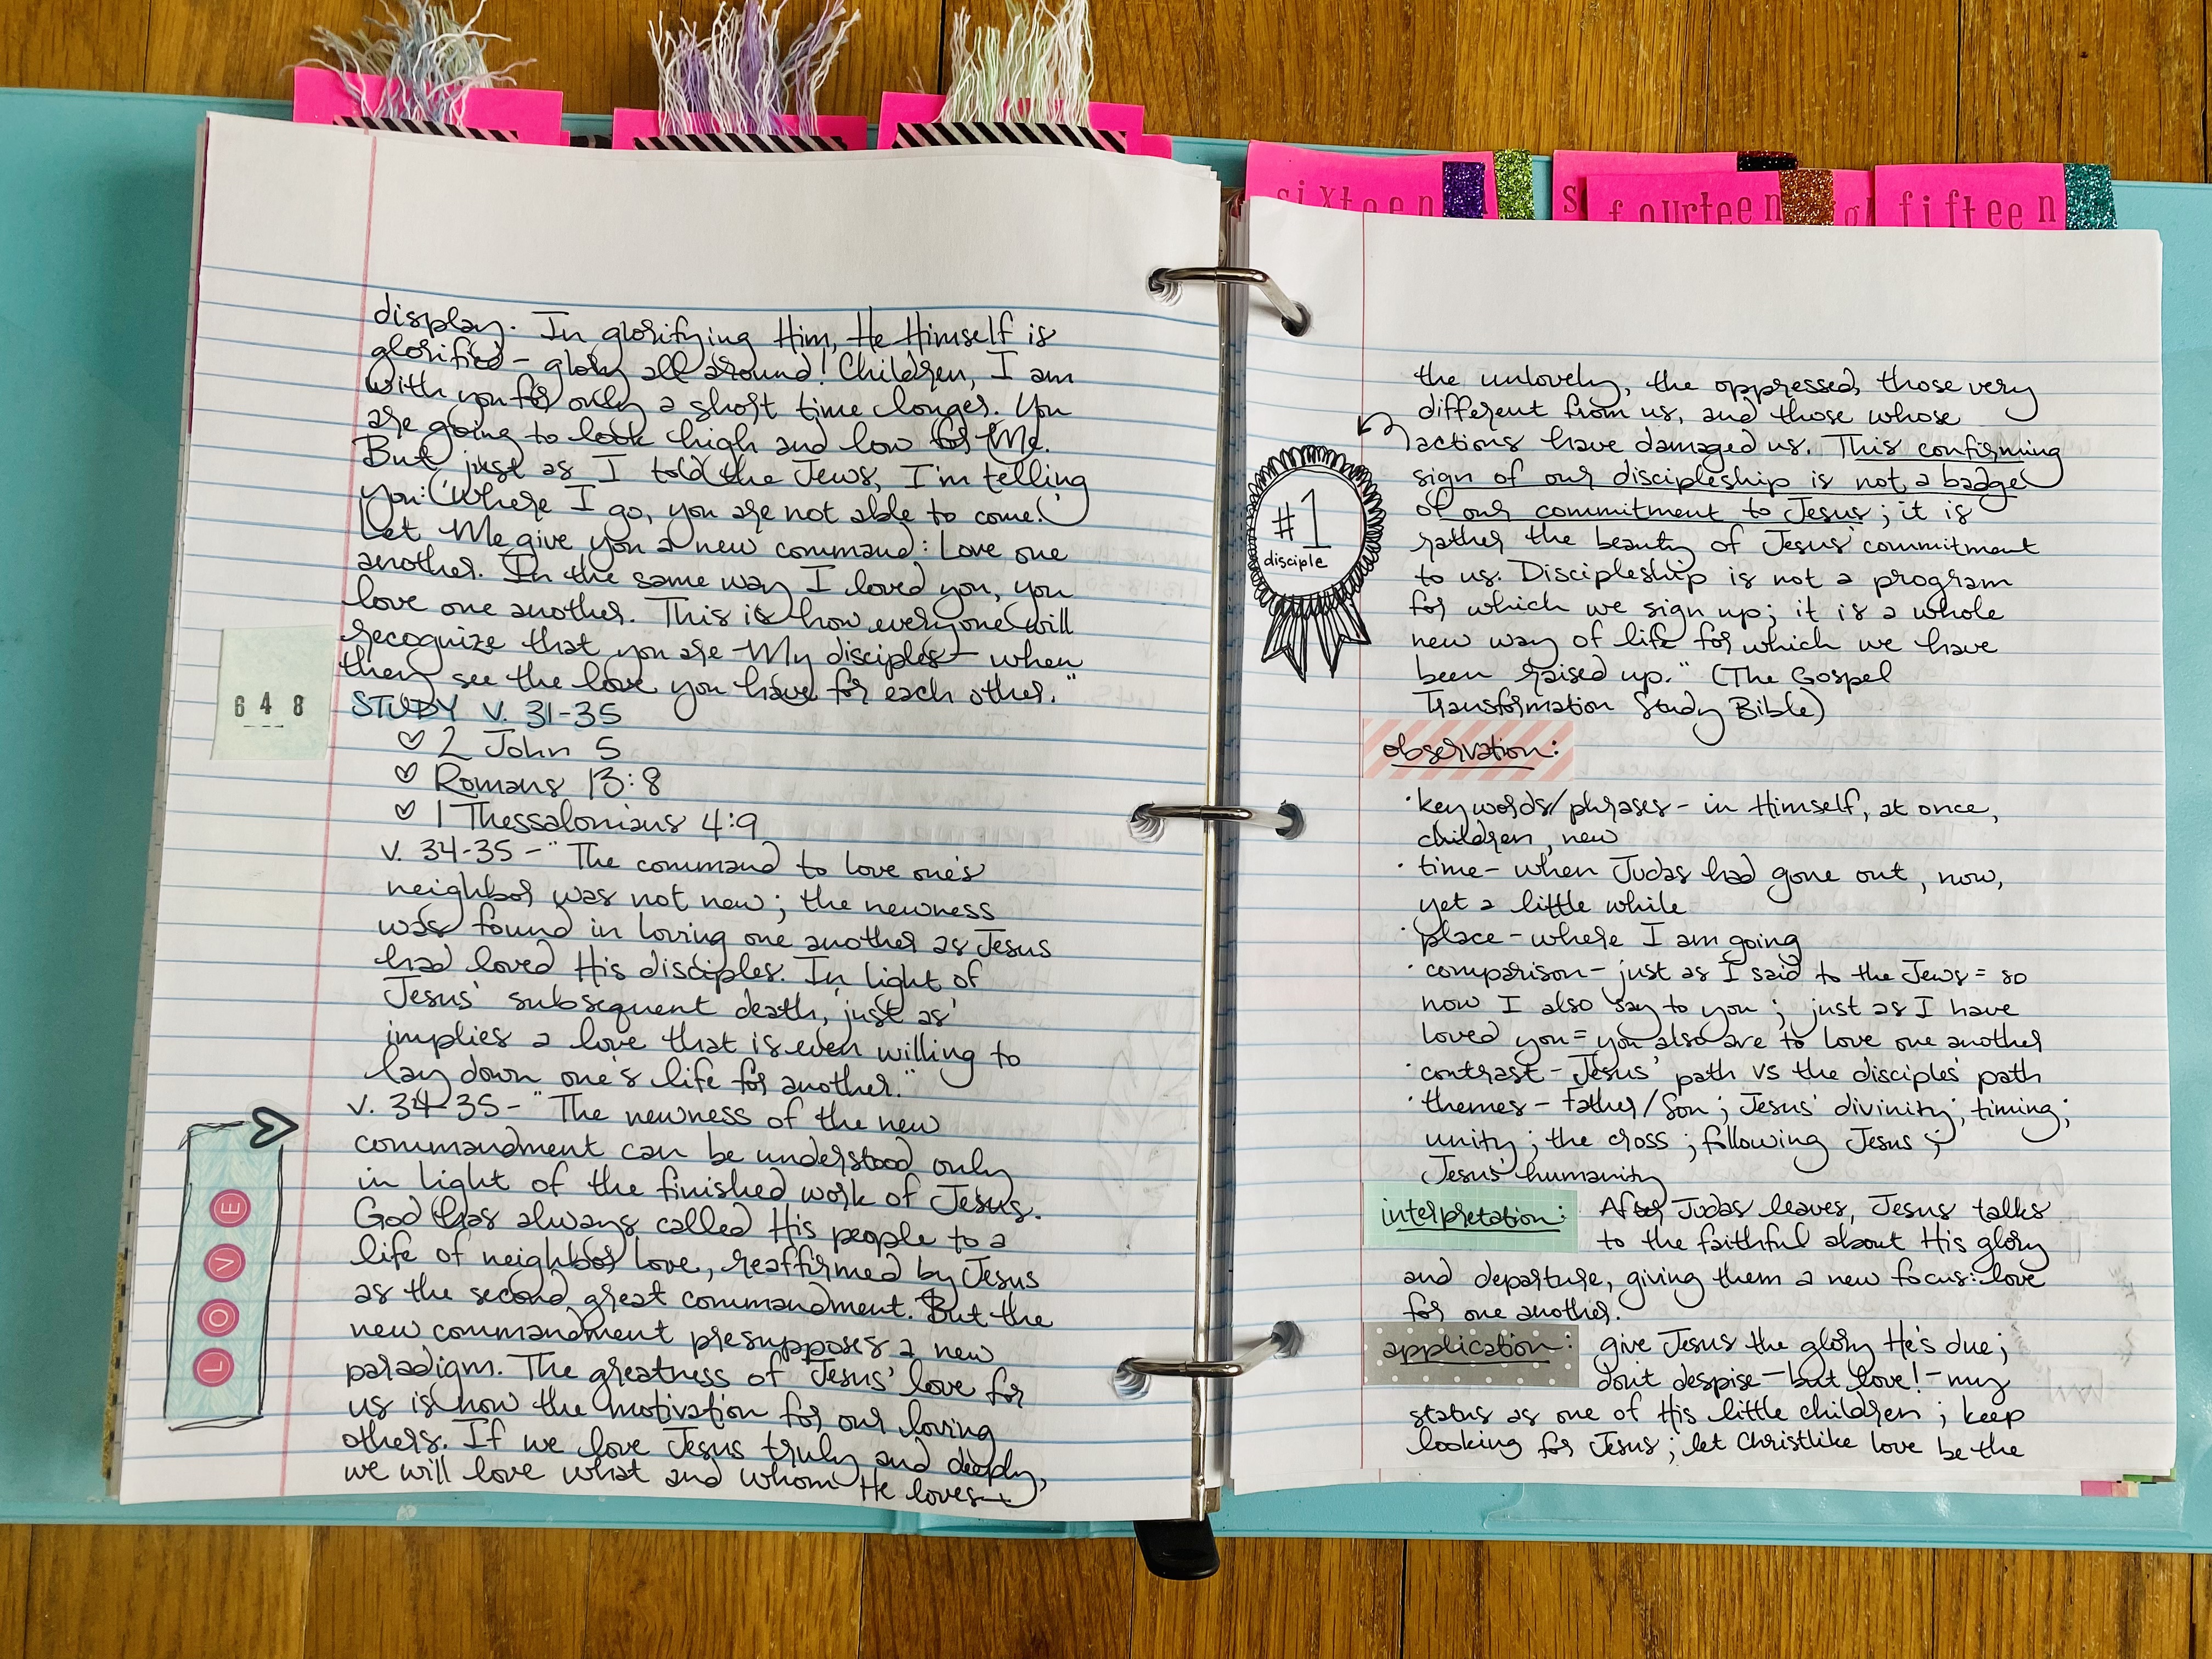 display. In glorifying Him, He Himself is
glorified - glory all around! Children, I am
with you for only a short time longer. You
are going to look high and low for Me.
But just as I told the Jews, I'm telling
you: 'Where I go, you are not able to come.'
Let Me give you a new command: Love one
another. In the same way I loved you, you
love one another. This is how everyone will
recognize that you are My disciples - when
they see the love you have for each other."
648
STUDY v. 31-35
♡ 2 John 5
♡ Romans 13:8
♡ 1 Thessalonians 4:9
v. 34-35 - "The command to love one's
neighbor was not new; the newness
was found in loving one another as Jesus
had loved His disciples. In light of
Jesus' subsequent death, 'just as'
implies a love that is even willing to
lay down one's life for another."
v. 34-35 - "The newness of the new
commandment can be understood only
in light of the finished work of Jesus.
God has always called His people to a
life of neighbor love, reaffirmed by Jesus
as the second great commandment. But the
new commandment presupposes a new
paradigm. The greatness of Jesus' love for
us is now the motivation for our loving
others. If we love Jesus truly and deeply,
we will love what and whom He loves—
LOVE
sixteen
s
fourteen
fifteen
the unlovely, the oppressed, those very
different from us, and those whose
actions have damaged us. This confirming
sign of our discipleship is not a badge
of our commitment to Jesus; it is
rather the beauty of Jesus' commitment
to us. Discipleship is not a program
for which we sign up; it is a whole
new way of life for which we have
been raised up." (The Gospel
Transformation Study Bible)
#1
disciple
observation:
· key words/phrases - in Himself, at once,
children, new
· time - when Judas had gone out, now,
yet a little while
· place - where I am going
· comparison - just as I said to the Jews = so
now I also say to you; just as I have
loved you = you also are to love one another
· contrast - Jesus' path vs the disciples' path
· themes - Father/Son; Jesus' divinity; timing;
unity; the cross; following Jesus;
Jesus' humanity
interpretation: After Judas leaves, Jesus talks
to the faithful about His glory
and departure, giving them a new focus: love
for one another.
application: give Jesus the glory He's due;
don't despise - but love! - my
status as one of His little children; keep
looking for Jesus; let Christlike love be the